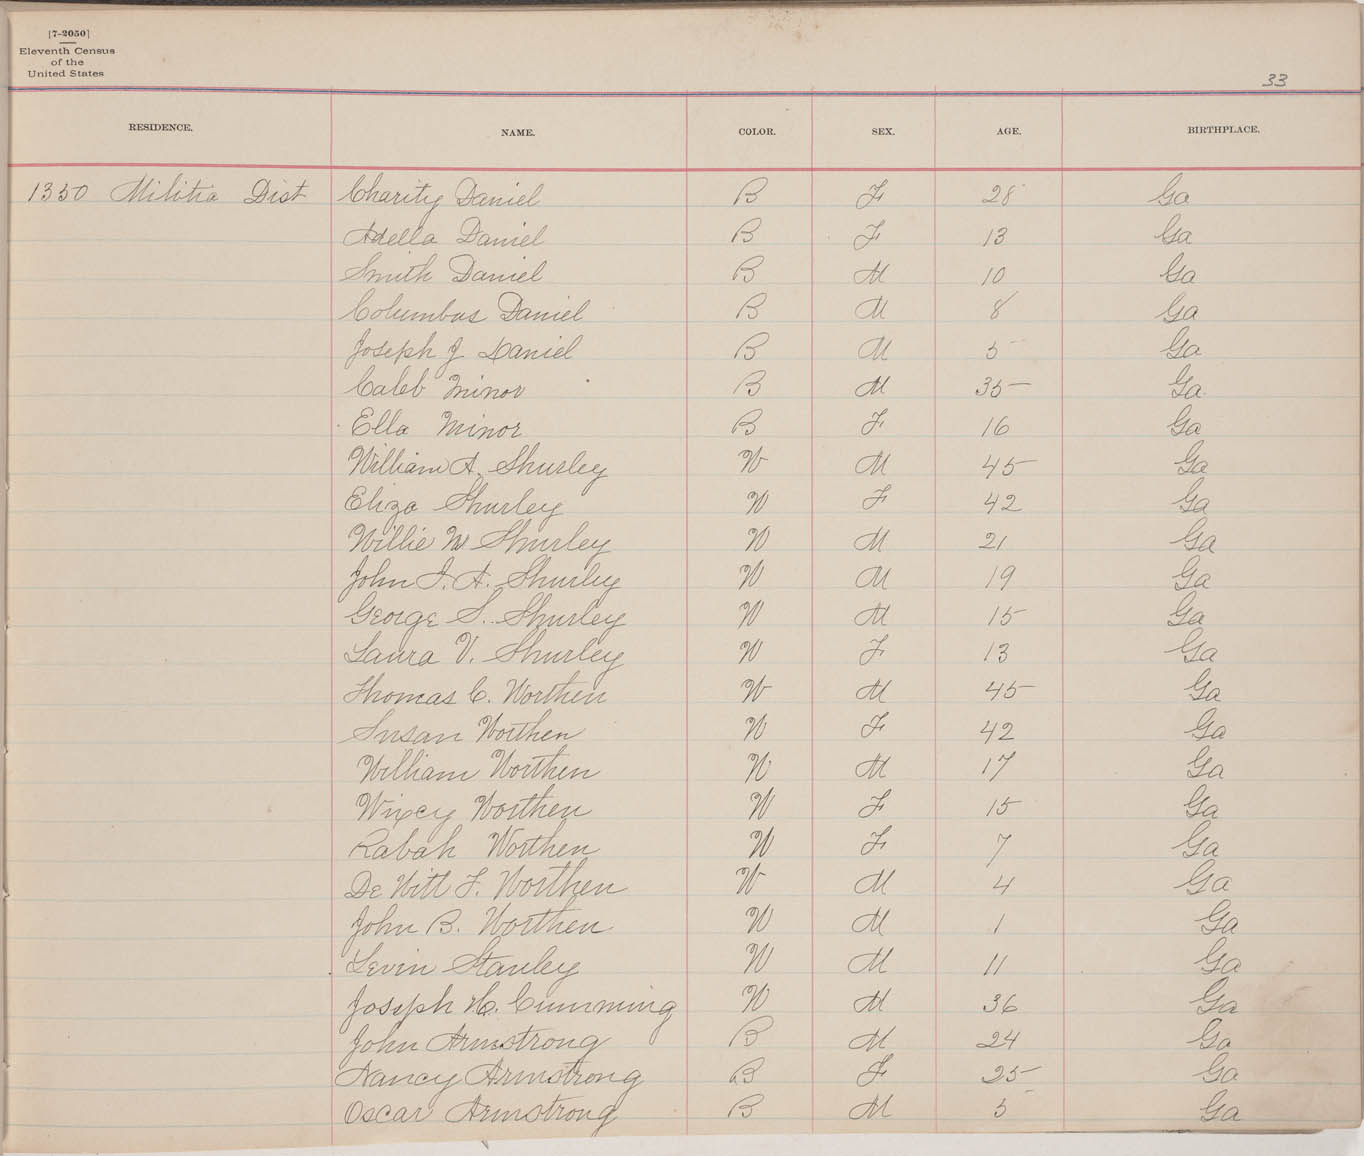 [7-2050]
Eleventh Census
of the
United States
33
RESIDENCE. NAME. COLOR. SEX. AGE. BIRTHPLACE.
1350 Militia Dist Charity Daniel B F 28 Ga
Adella Daniel B F 13 Ga
Smith Daniel B M 10 Ga
Columbus Daniel B M 8 Ga
Joseph J Daniel B M 5 Ga
Caleb Minor B M 35 Ga
Ella Minor B F 16 Ga
William A. Shurley W M 45 Ga
Eliza Shurley W F 42 Ga
Willie W Shurley W M 21 Ga
John I. A. Shurley W M 19 Ga
George S. Shurley W M 15 Ga
Laura V. Shurley W F 13 Ga
Thomas C. Worthen W M 45 Ga
Susan Worthen W F 42 Ga
William Worthen W M 17 Ga
Worthen W F 15 Ga
Rabah Worthen W F 7 Ga
De Witt F. Worthen W M 4 Ga
John B. Worthen W M 1 Ga
Levin Stanley W M 11 Ga
Joseph H. Cumming W M 36 Ga
John Armstrong B M 24 Ga
Nancy Armstrong B F 25 Ga
Oscar Armstrong B M 5 Ga